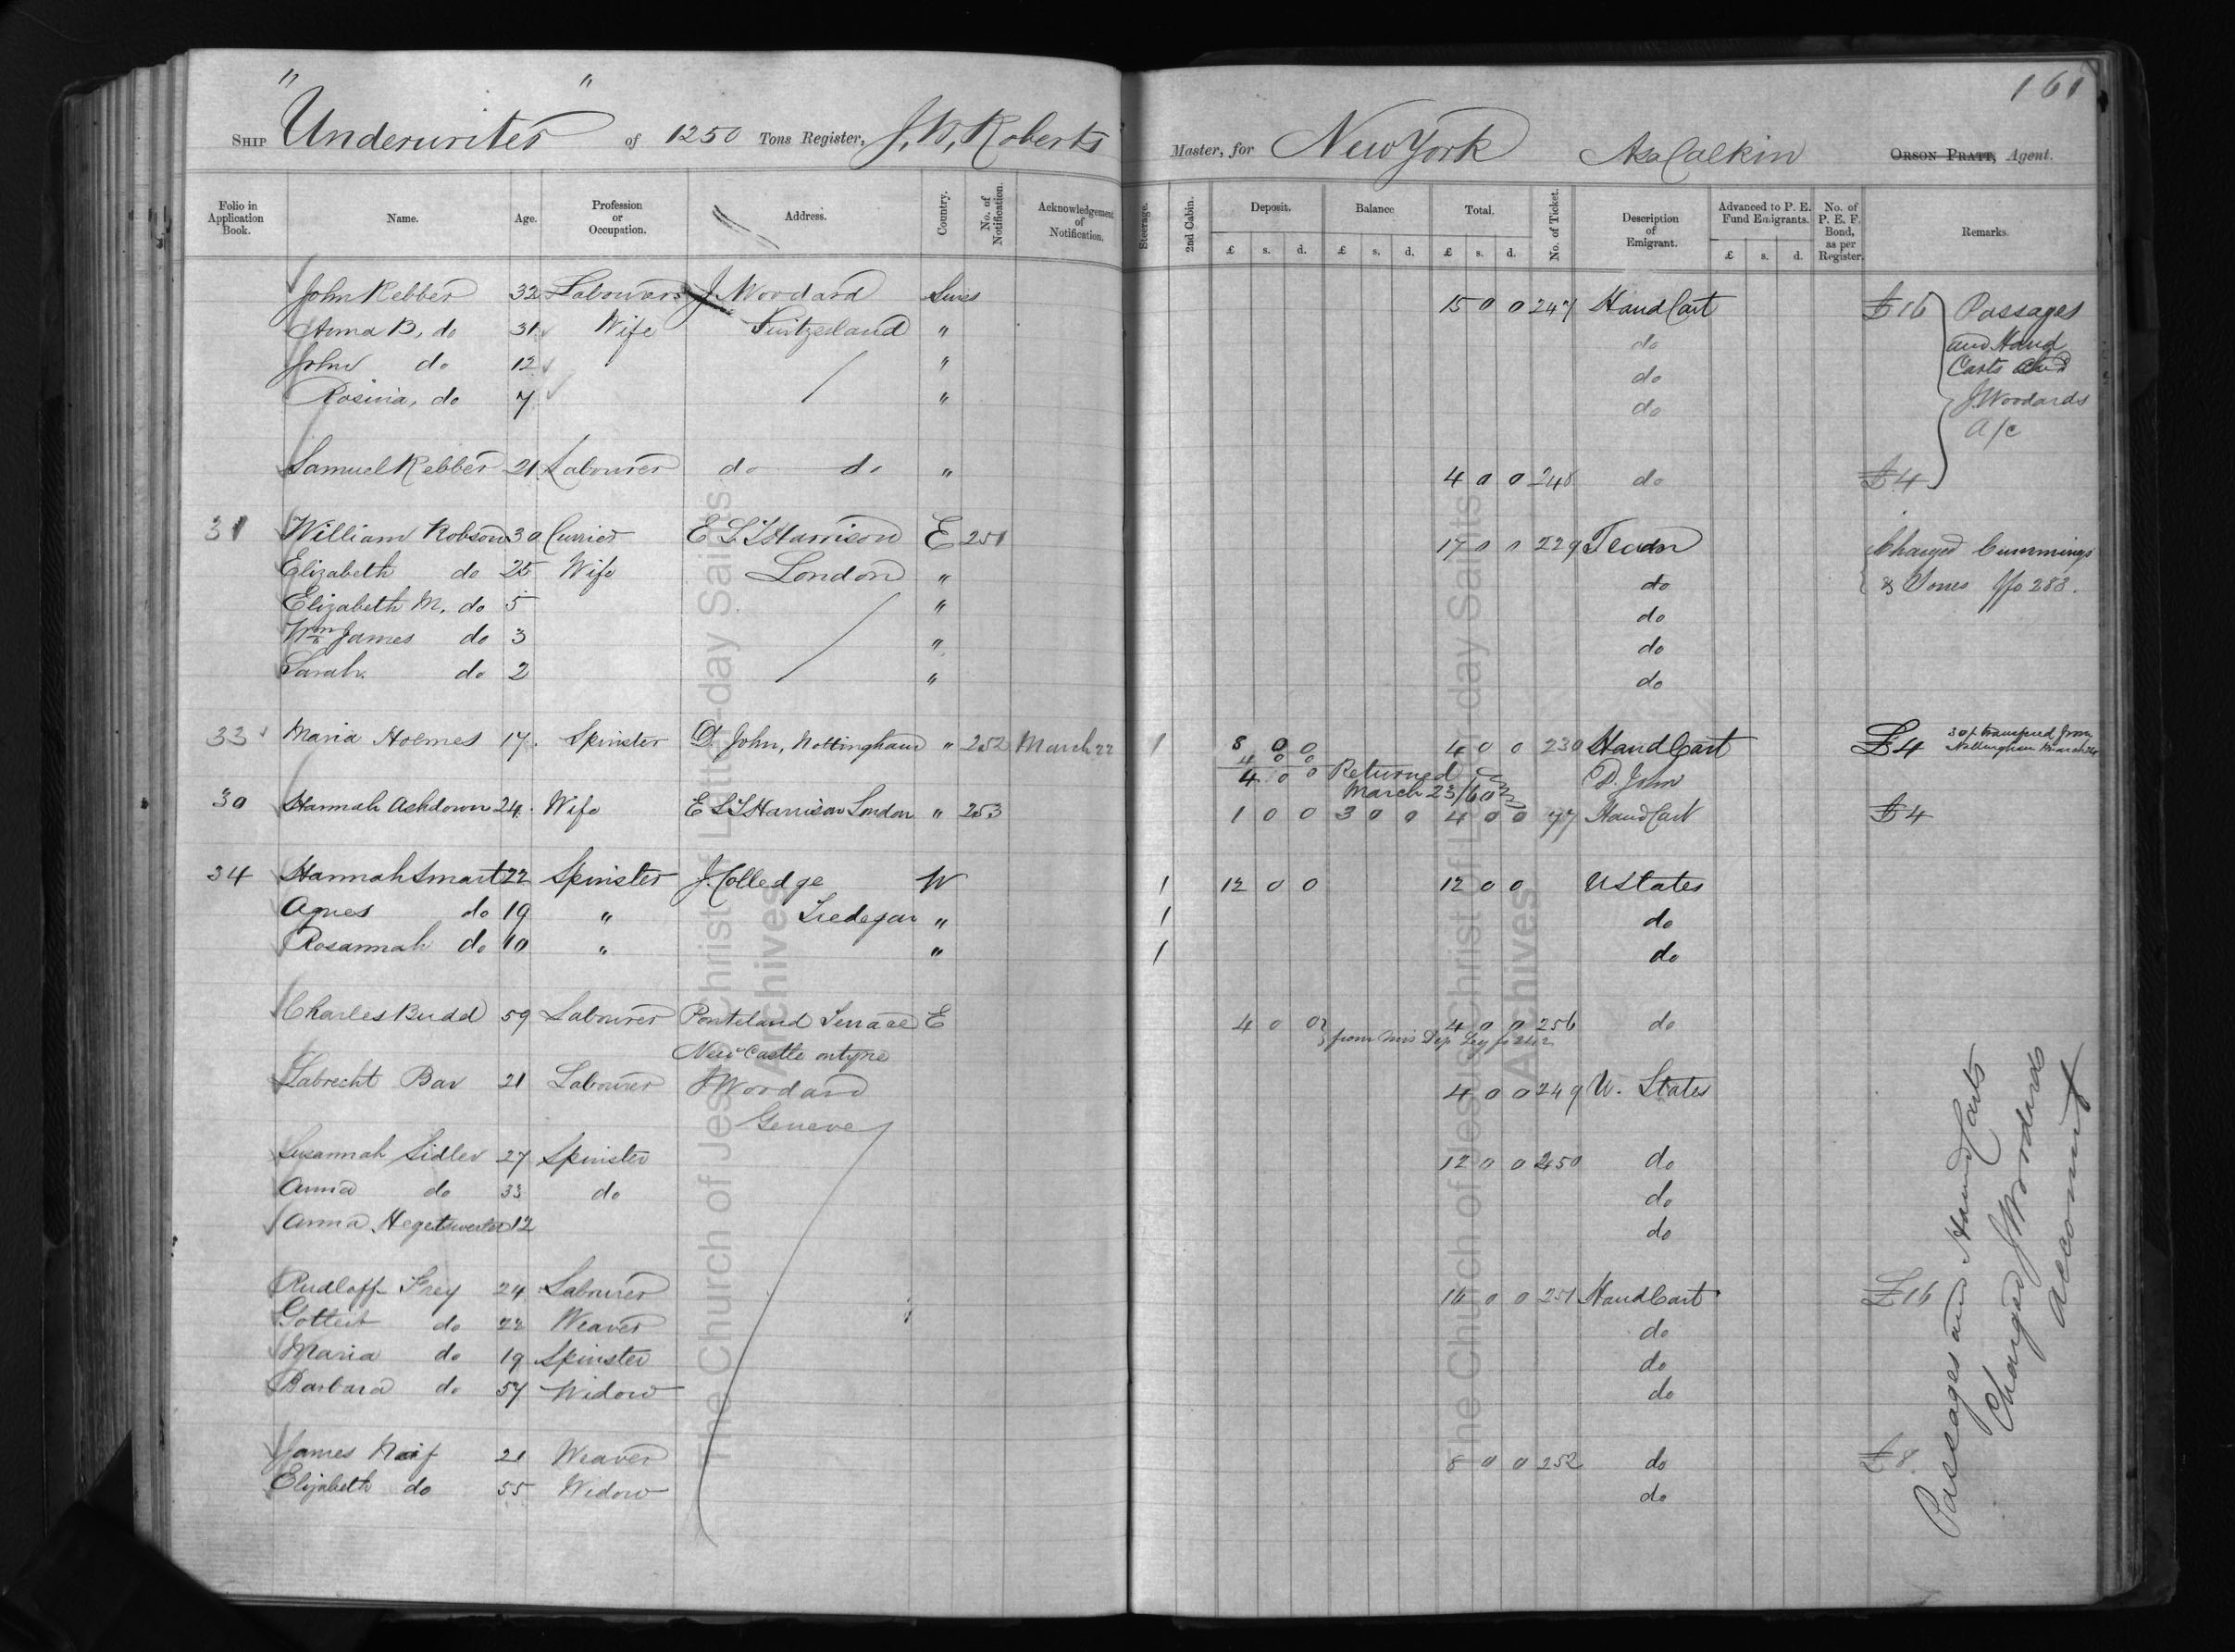 161
SHIP "Underwriter" of 1250 Tons Register, J. W. Roberts Master, for New York Asa Calkin ORSON PRATT, Agent.
Folio in Application Book. Name. Age. Profession or Occupation. Address. Country. No. of Notification. Acknowledgement of Notification. Steerage. 2nd Cabin. Deposit. Balance Total. No. of Ticket. Description of Emigrant. Advanced to P. E. Fund Emigrants. No. of P. E. F. Bond, as per Register. Remarks.
£ s. d. £ s. d. £ s. d. £ s. d.
John Rebber 32 Labourer J. Woodard Swiss 15 0 0 247 Hand Cart £16 Passages
Anna B, do 31 Wife Switzerland " do and Hand
John do 12 " do Carts
Rosina, do 7 " do J Woodards
a/c
Samuel Rebber 21 Labourer do do " 4 0 0 248 do £4
31 William Robson 30 Currier E L T Harrison E 251 17 0 0 229 Team Charged Cummings
Elizabeth do 25 Wife London " do & Jones ffo 288.
Elizabeth M, do 5 " do
Wm James do 3 " do
Sarah do 2 " do
33 Maria Holmes 17 Spinster D. John, Nottingham " 252 March 22 1 8 0 0 4 0 0 230 Hand Cart £4 30/ transfered from Nottingham March 24
4 0 0
4 0 0 Returned March 23/60 D. John
30 Hannah Ashdown 24 Wife E L T Harrison London " 253 1 0 0 3 0 0 4 0 0 77 Hand Cart £4
34 Hannah Smart 22 Spinster J. Colledge W 1 12 0 0 12 0 0 U States
Agnes do 19 " Tredegar " 1 do
Rosannah do 10 " " 1 do
Charles Budd 59 Labourer Ponteland Terrace E 4 0 0 4 0 0 256 do
New Castle on tyne from Mis Dep Leg fo 242
Labrecht Bar 21 Labourer J Woodard 4 0 0 249 U. States
Geneve
Susannah Sidler 27 Spinster 12 0 0 250 do
Anna do 33 do do
Anna Hegetsweiler 12 do
Rudloff Frey 24 Labourer 16 0 0 251 Hand Cart £16
Gotleit do 22 Weaver do
Maria do 19 Spinster do
Barbara do 57 Widow do
James Naif 21 Weaver 8 0 0 252 do £8
Elizabeth do 55 Widow do
Passages and Hand Carts
Charged J Woodards
account
The Church of Jesus Christ of Latter-day Saints
Archives
The Church of Jesus Christ of Latter-day Saints
Archives